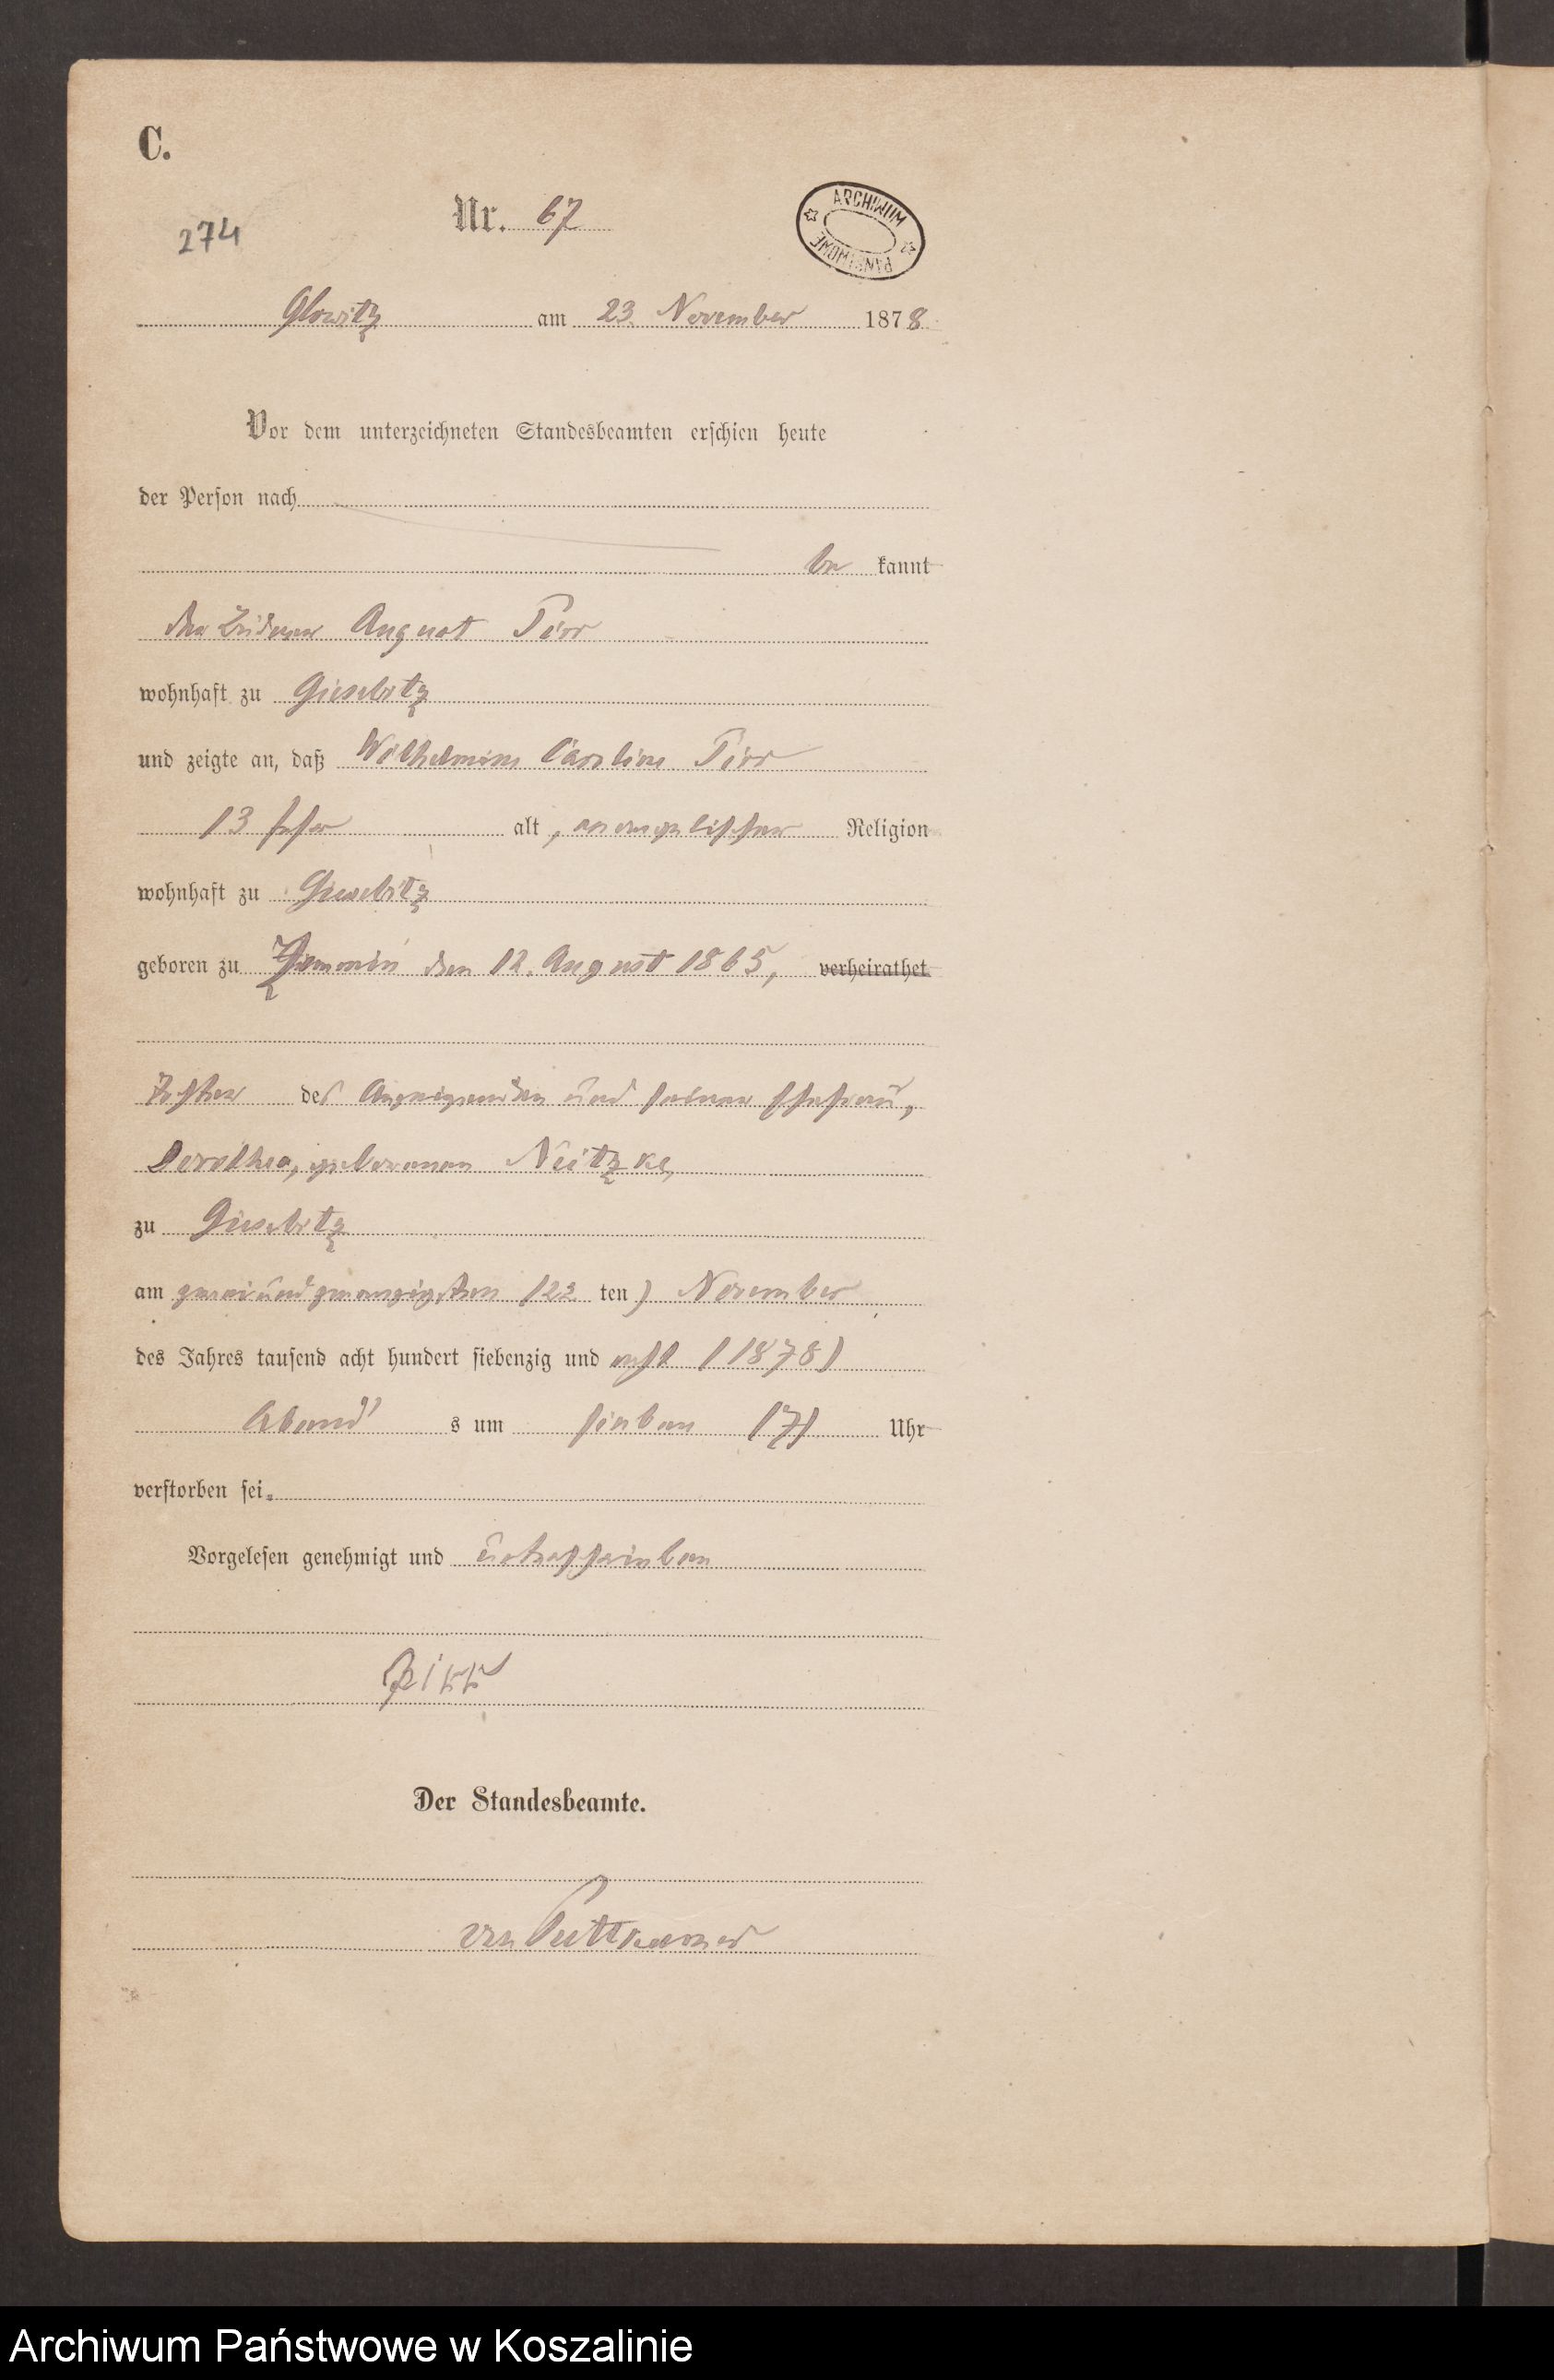 C.
274
Nr. 67
ARCHIWUM
PAŃSTWOWE
Glowitz am 23. November 1878
Vor dem unterzeichneten Standesbeamten erschien heute
der Person nach
be kannt
der August Pirr
wohnhaft zu Giesebitz
und zeigte an, daß Wilhelmine Caroline Pirr
13 Jahr alt, evangelischer Religion
wohnhaft zu Giesebitz
geboren zu Zemmin den 12. August 1865, verheirathet
Tochter des Anzeigenden und seiner Ehefrau,
Dorothea, geborenen Neitzke,
zu Giesebitz
am zwei und zwanzigsten (22 ten) November
des Jahres tausend acht hundert siebenzig und acht (1878)
Abend s um sieben (7) Uhr
verstorben sei.
Vorgelesen genehmigt und unterschrieben
Pirr
Der Standesbeamte.
von Puttkamer
Archiwum Państwowe w Koszalinie